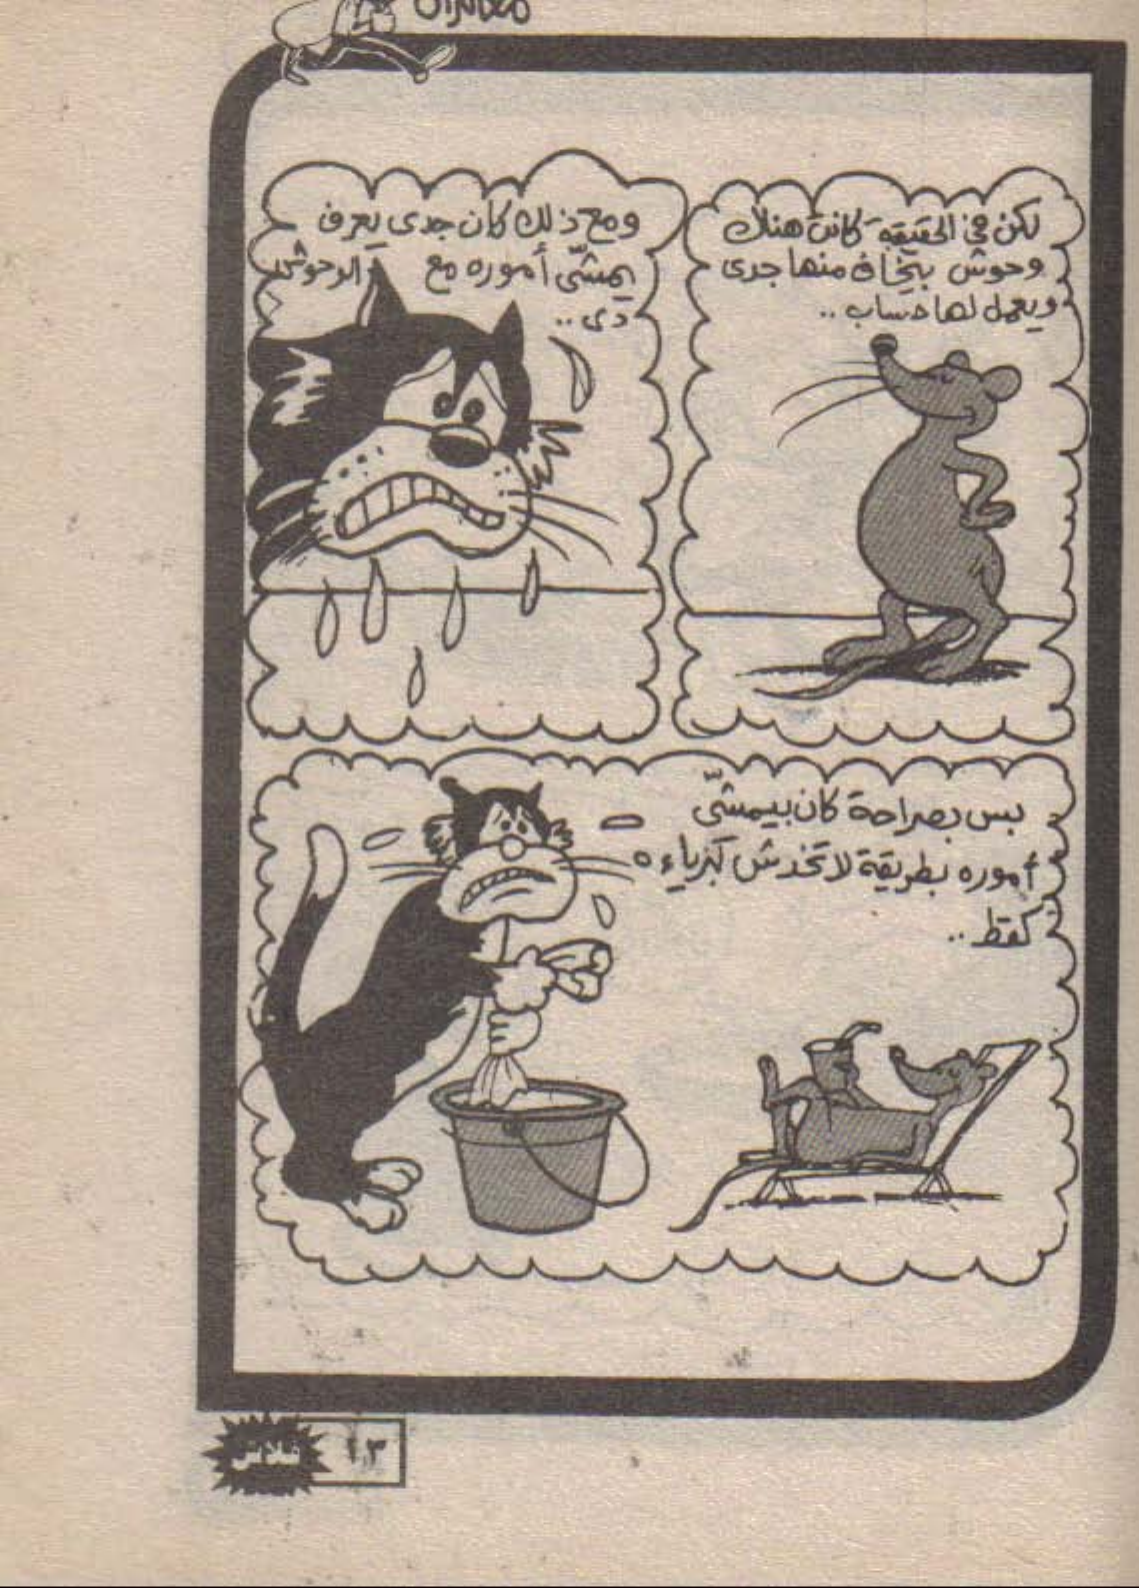 مغامرات
لكن في الحقيقة كانت هناك
وحوش بيخاف منها جدى
ويعمل لها حساب ..
ومع ذلك كان جدى يعرف
يمشّى أموره مع الوحوش
دى ..
بس بصراحة كان بيمشّى
أموره بطريقة لا تخدش كبرياءه
كقط ..
١٣
فلاش